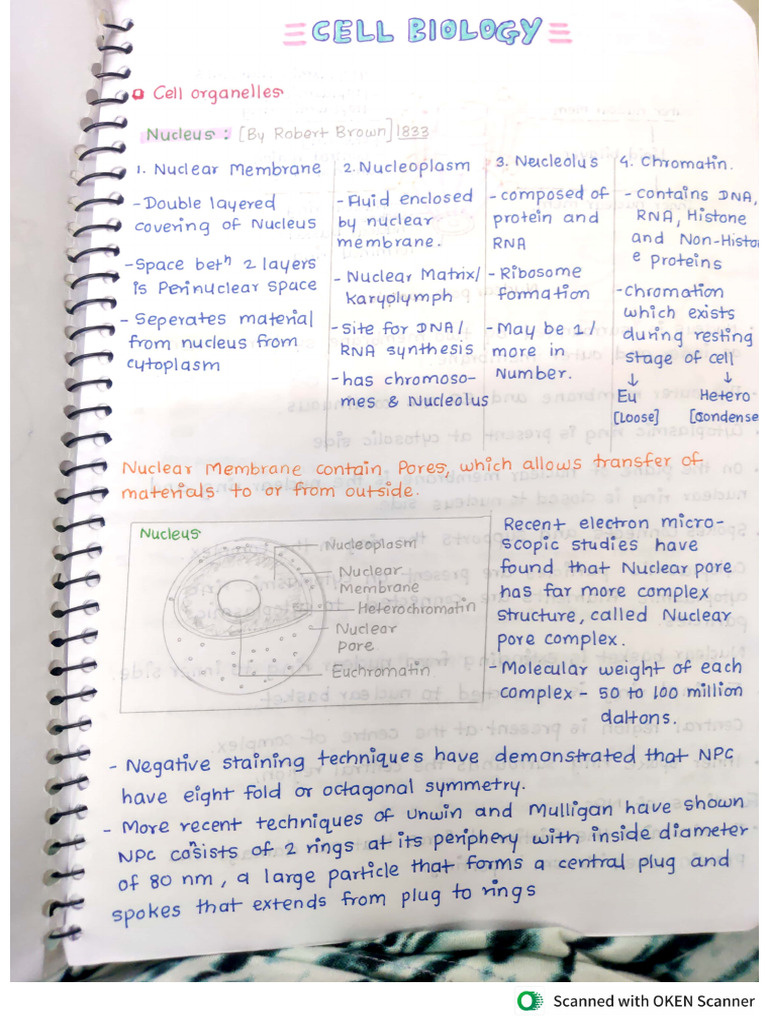 CELL BIOLOGY
Cell organelles
Nucleus : [By Robert Brown] 1833
1. Nuclear Membrane
- Double layered
covering of Nucleus
- Space betⁿ 2 layers
is Perinuclear space
- Seperates material
from nucleus from
cytoplasm
2. Nucleoplasm
- Fluid enclosed
by nuclear
membrane.
- Nuclear Matrix/
karyolymph
- Site for DNA/
RNA synthesis
- has chromoso-
mes & Nucleolus
3. Nucleolus
- composed of
protein and
RNA
- Ribosome
formation
- May be 1/
more in
Number.
4. Chromatin.
- contains DNA,
RNA, Histone
and Non-Histon
e proteins
- Chromation
which exists
during resting
stage of cell
↓ ↓
Eu Hetero
[Loose] [Condense
Nuclear Membrane contain Pores, which allows transfer of
materials to or from outside.
Nucleus
Nucleoplasm
Nuclear
Membrane
Heterochromatin
Nuclear
pore
Euchromatin
Recent electron micro-
scopic studies have
found that Nuclear pore
has far more complex
structure, called Nuclear
pore complex.
- Molecular weight of each
complex - 50 to 100 million
daltons.
- Negative staining techniques have demonstrated that NPC
have eight fold or octagonal symmetry.
- More recent techniques of Unwin and Mulligan have shown
NPC cosists of 2 rings at its periphery with inside diameter
of 80 nm, a large particle that forms a central plug and
spokes that extends from plug to rings
Scanned with OKEN Scanner